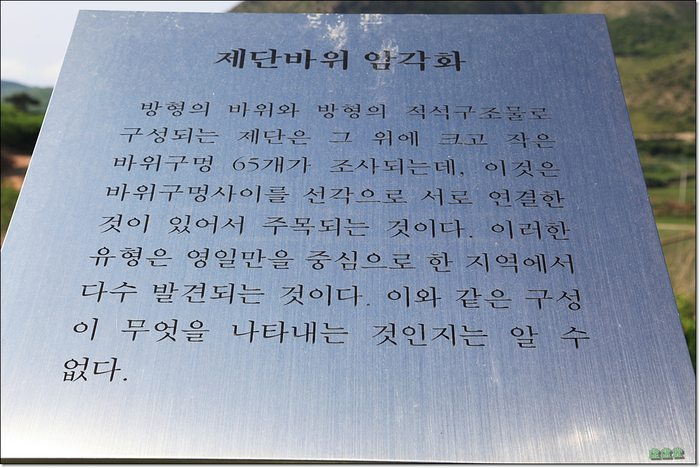 제단바위 암각화
방형의 바위와 방형의 적석구조물로
구성되는 제단은 그 위에 크고 작은
바위구멍 65개가 조사되는데, 이것은
바위구멍사이를 선각으로 서로 연결한
것이 있어서 주목되는 것이다. 이러한
유형은 영일만을 중심으로 한 지역에서
다수 발견되는 것이다. 이와 같은 구성
이 무엇을 나타내는 것인지는 알 수
없다.